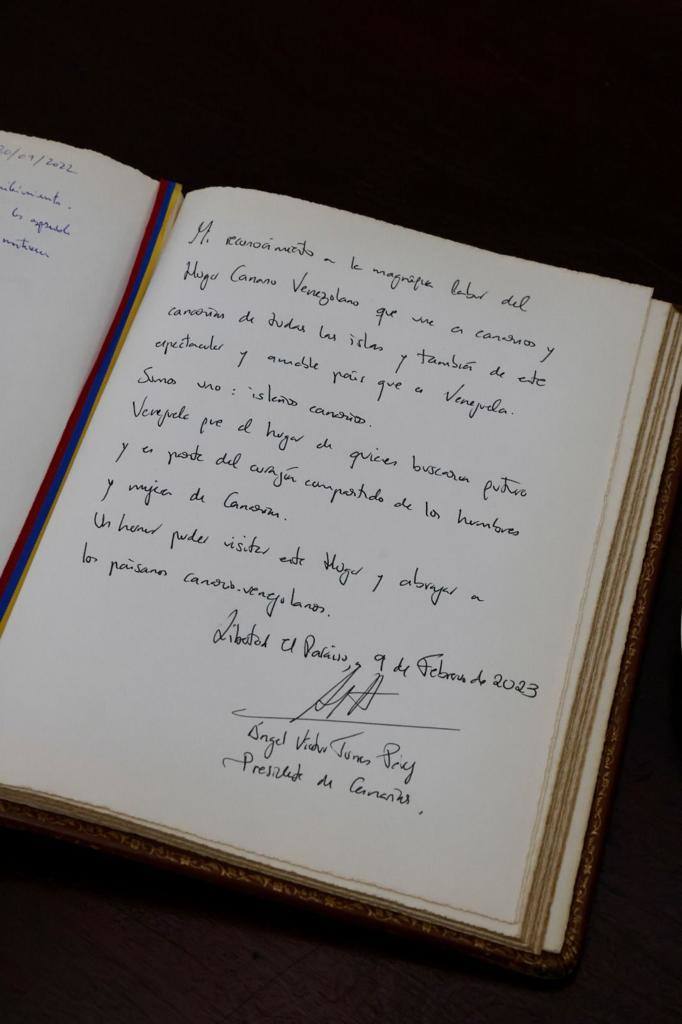 20/09/2022
Mi reconocimiento a la magnífica labor del
Hogar Canario Venezolano que une a canarios y
canarias de todas las islas y también de este
espectacular y amable país que es Venezuela.
Somos uno: isleños canarios.
Venezuela fue el hogar de quienes buscaron futuro
y es parte del corazón compartido de los hombres
y mujeres de Canarias.
Un honor poder visitar este Hogar y abrazar a
los paisanos canario-venezolanos.
El Paraíso, 9 de Febrero de 2023
Ángel Víctor Torres Pérez
Presidente de Canarias.